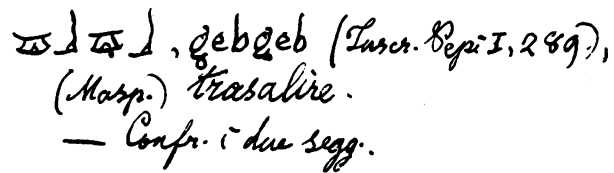 𓎼𓃀𓎼𓃀, gebgeb (Inscr. Pepi I, 289.),
(Masp.) trasalire.
— Confr. i due segg.